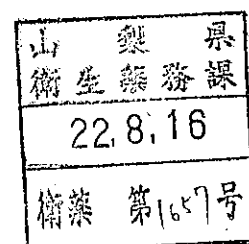 山梨県
衛生薬務課
22.8.16
衛薬 第1657号